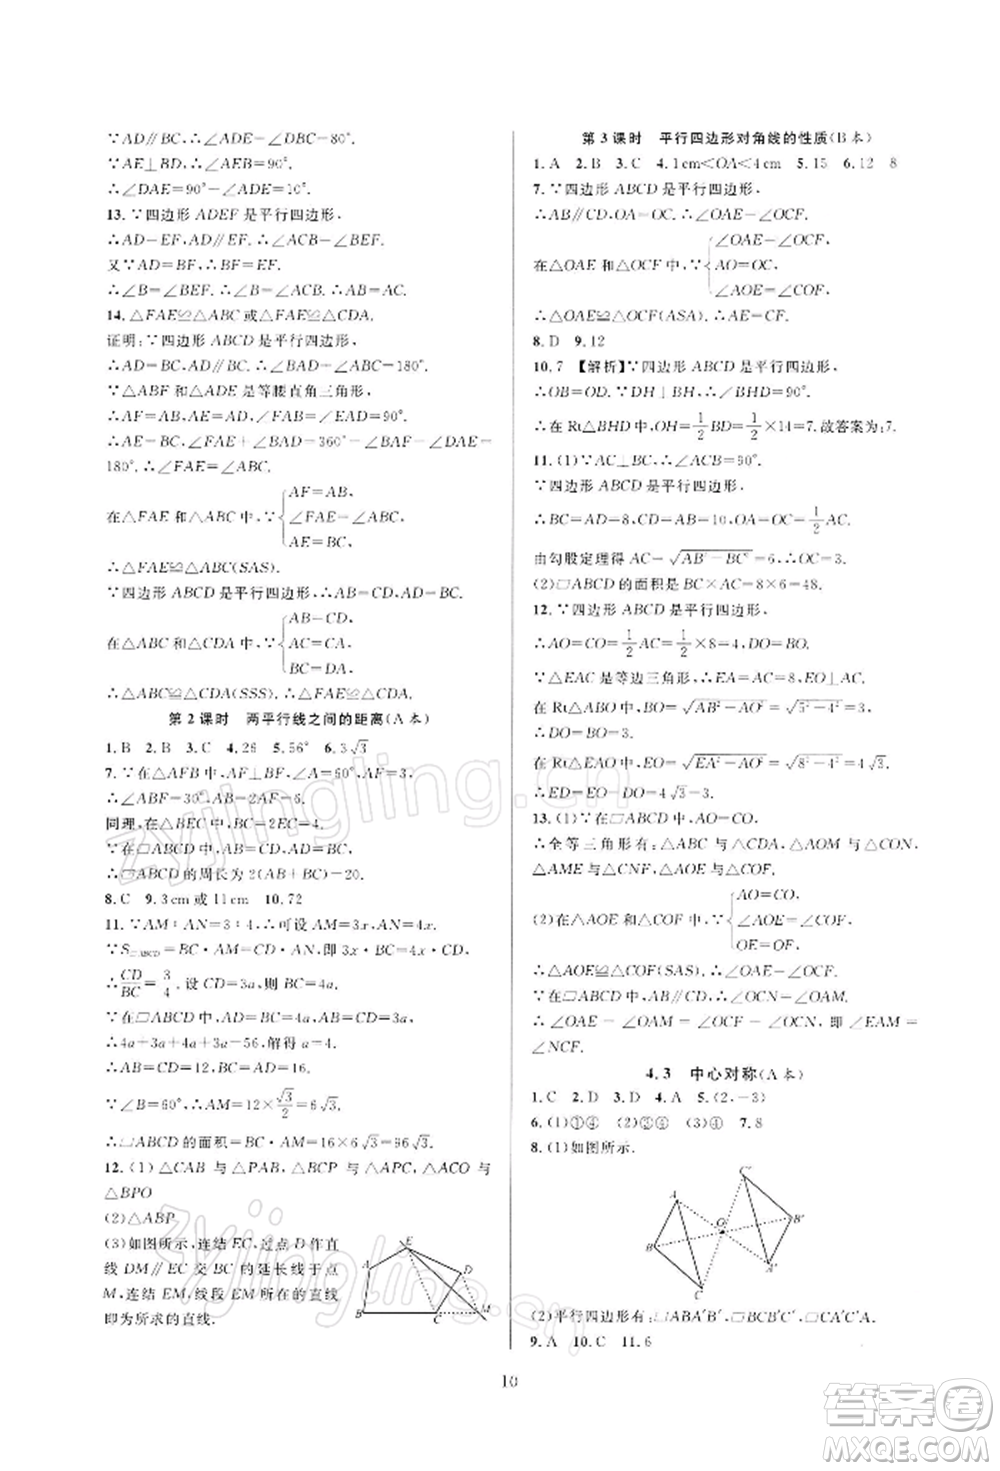 ∵AD∥BC,∴∠ADE=∠DBC=80°.
∵AE⊥BD,∴∠AED=90°,
∴∠DAE=90°-∠ADE=10°.
13.∵四边形 ADEF 是平行四边形,
∴AD=EF,AD∥EF.∴∠ACB=∠FEB.
又∵AD=BF,∴BF=EF.
∴∠B=∠FEB,∴∠B=∠ACB.∴AB=AC.
14.△FAE≌△ABC 或△FAE≌△CDA.
证明:∵四边形 ABCD 是平行四边形,
∴AD=BC,AD∥BC.∴∠BAD+∠ABC=180°.
∵△ABF 和△ADE 是等腰直角三角形,
∴AF=AB,AE=AD,∠FAB=∠EAD=90°.
∴AE=BC,∠FAE+∠BAD=360°-∠BAF-∠DAE=
180°.∴∠FAE=∠ABC.
AF=AB,
在△FAE 和△ABC 中,∵∠FAE=∠ABC,
AE=BC,
∴△FAE≌△ABC(SAS).
∵四边形 ABCD 是平行四边形,∴AB=CD,AD=BC.
AB=CD,
在△ABC 和△CDA 中,∵AC=CA,
BC=DA,
∴△ABC≌△CDA(SSS).∴△FAE≌△CDA.
第 2 课时 两平行线之间的距离(A 本)
1.B 2.B 3.C 4.26 5.56° 6.3√3
7.∵在△AFB 中,AF⊥BF,∠A=60°,AF=3,
∴∠ABF=30°,AB=2AF=6.
同理,在△BEC 中,BC=2EC=4.
∵在□ABCD 中,AB=CD,AD=BC,
∴□ABCD 的周长为 2(AB+BC)=20.
8.C 9.3 cm 或 11 cm 10.72
11.∵AM∶AN=3∶4,∴可设 AM=3x,AN=4x.
∵S□ABCD=BC·AM=CD·AN,即 3x·BC=4x·CD,
∴CD/BC=3/4.设 CD=3a,则 BC=4a.
∵在□ABCD 中,AD=BC=4a,AB=CD=3a,
∴4a+3a+4a+3a=56,解得 a=4.
∴AB=CD=12,AD=BC=16.
∵∠B=60°,∴AM=12×√3/2=6√3.
∴□ABCD 的面积=BC·AM=16×6√3=96√3.
12.(1)△CAB 与△PAB,△BCP 与△APC,△ACO 与
△BPO
(2)△ABP
(3)如图所示,连结 EC,过点 D 作直
线 DM∥EC 交 BC 的延长线于点
M,连结 EM,线段 EM 所在的直线
即为所求的直线.
A
B
C
D
E
M
第 3 课时 平行四边形对角线的性质(B 本)
1.A 2.B 3.C 4.1 cm<OA<4 cm 5.15 6.12 8
7.∵四边形 ABCD 是平行四边形,
∴AB∥CD,OA=OC.∴∠OAE=∠OCF.
∠OAE=∠OCF,
在△OAE 和△OCF 中,∵AO=OC,
∠AOE=∠COF,
∴△OAE≌△OCF(ASA).∴AE=CF.
8.D 9.12
10.7 【解析】∵四边形 ABCD 是平行四边形,
∴OB=OD.∵DH⊥BH,∴∠BHD=90°.
∴在 Rt△BHD 中,OH=1/2BD=1/2×14=7.故答案为:7.
11.(1)∵AC⊥BC,∴∠ACB=90°.
∵四边形 ABCD 是平行四边形,
∴BC=AD=8,CD=AB=10,OA=OC=1/2AC.
由勾股定理得 AC=√(AB²-BC²)=6,∴OC=3.
(2)□ABCD 的面积是 BC×AC=8×6=48.
12.∵四边形 ABCD 是平行四边形,
∴AO=CO=1/2AC=1/2×8=4,DO=BO.
∵△EAC 是等边三角形,∴EA=AC=8,EO⊥AC.
在 Rt△ABO 中,BO=√(AB²-AO²)=√(5²-4²)=3.
∴DO=BO=3.
在 Rt△EAO 中,EO=√(EA²-AO²)=√(8²-4²)=4√3.
∴ED=EO-DO=4√3-3.
13.(1)∵在□ABCD 中,AO=CO.
∴全等三角形有:△ABC 与△CDA,△AOM 与△CON,
△AME 与△CNF,△AOE 与△COF.
AO=CO,
(2)在△AOE 和△COF 中,∵∠AOE=∠COF,
OE=OF,
∴△AOE≌△COF(SAS),∴∠OAE=∠OCF.
∵在□ABCD 中,AB∥CD,∴∠OCN=∠OAM.
∴∠OAE-∠OAM=∠OCF-∠OCN,即∠EAM=
∠NCF.
4.3 中心对称(A 本)
1.C 2.D 3.D 4.A 5.(2,-3)
6.(1)①④ (2)①③④ (3)④ 7.8
8.(1)如图所示.
A
B
C
O
C'
B'
A'
(2)平行四边形有:□ABA'B',□BCB'C',□CAC'A'.
9.A 10.C 11.6
10
zyjingling.cn
zyjingling.cn
答案圈
MXQE.COM